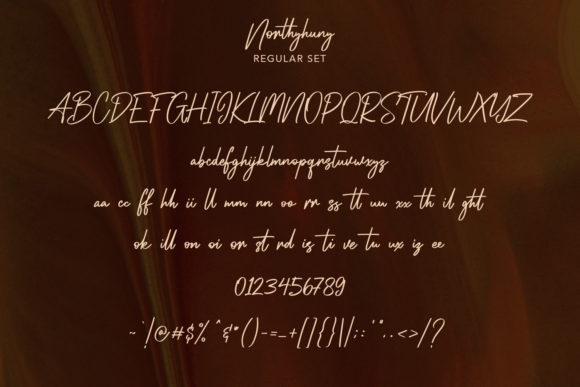 Northyhuny
REGULAR SET
ABCDEFGHIJKLMNOPQRSTUVWXYZ
abcdefghijklmnopqrstuvwxyz
aa cc ff hh ii ll mm nn oo rr ss tt uu xx th il ght
ok ill on oi or st rd is ti ve tu ux iz ee
0123456789
~`!@#$%^&*()-=_+[]{}\|;:'",.<>/?